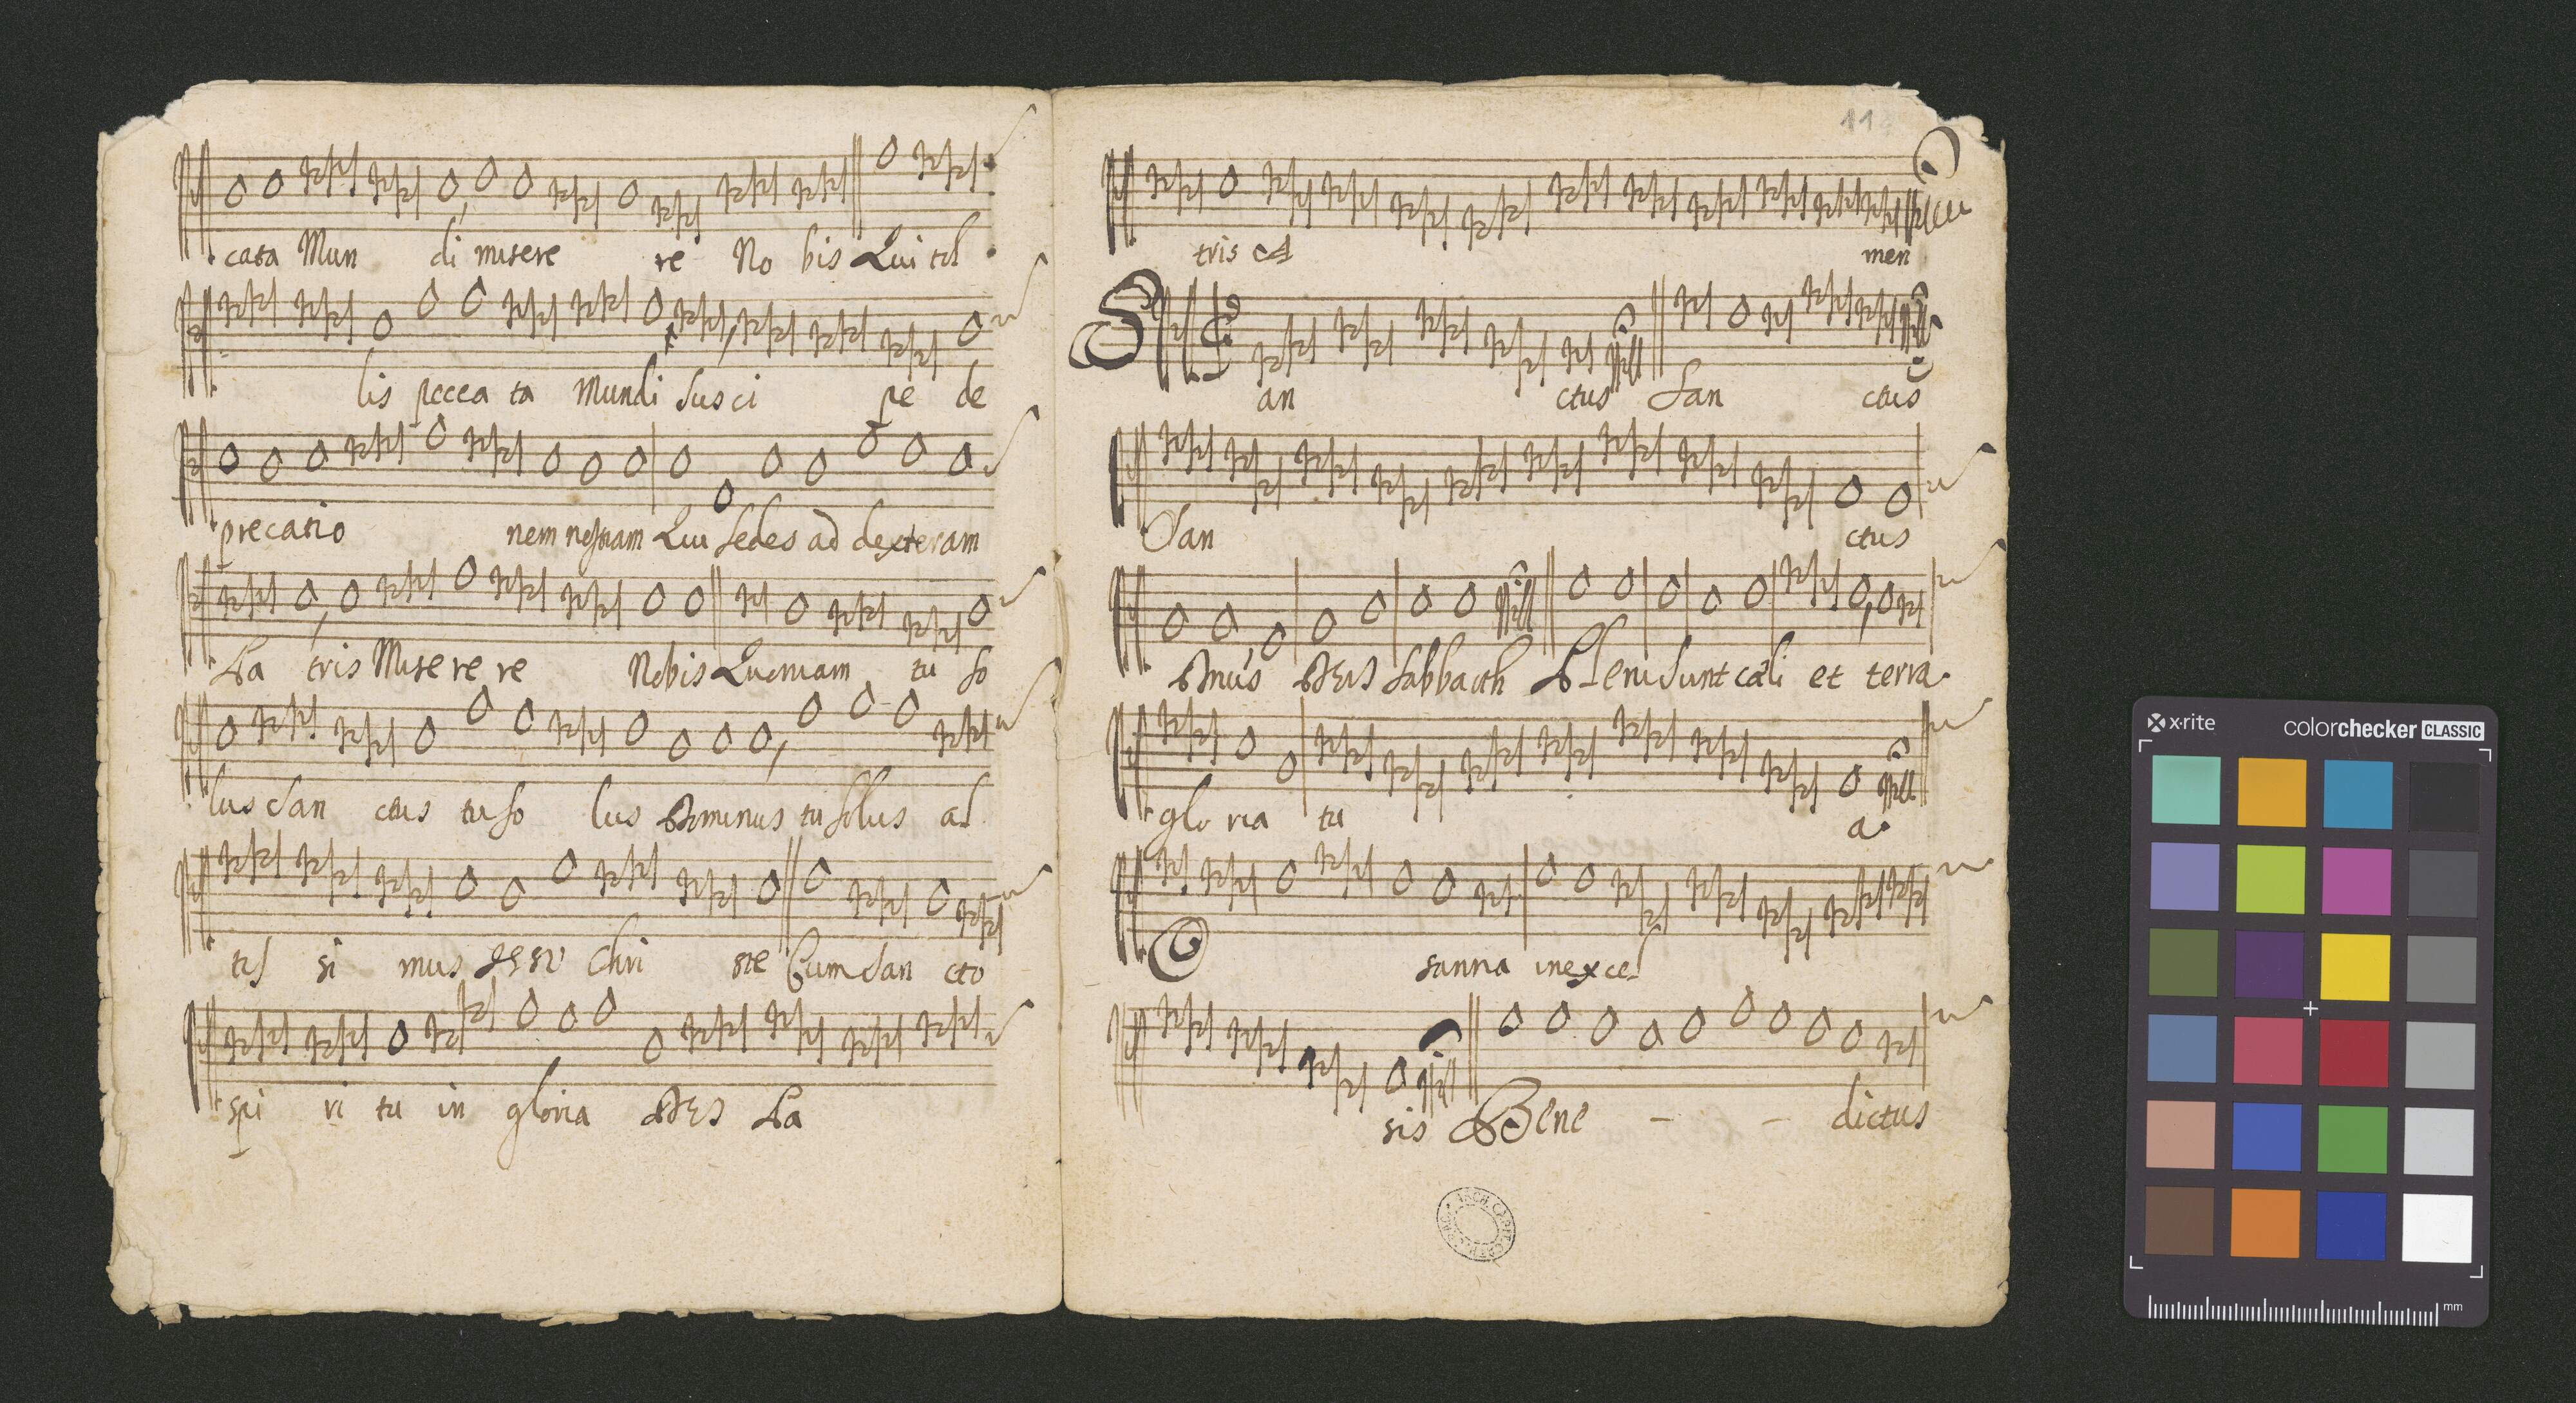 cata Mun di misere re No bis Qui tol
lis pecca ta Mundi susci pe de
precatio nem nostram Qui sedes ad dexteram
Pa tris Mise re re Nobis Quoniam tu so
lus San ctus tu so lus Dominus tu solus al
tis si mus Jesu Chri ste Cum San cto
spi ri tu in gloria DEs Pa
11
tris A men
S an ctus San ctus
San ctus
Dnus DEus sabbaoth Pleni sunt cæli et terra
glo ria tu a.
O sanna in excel
sis Bene - - dictus
x·rite
colorchecker CLASSIC
mm